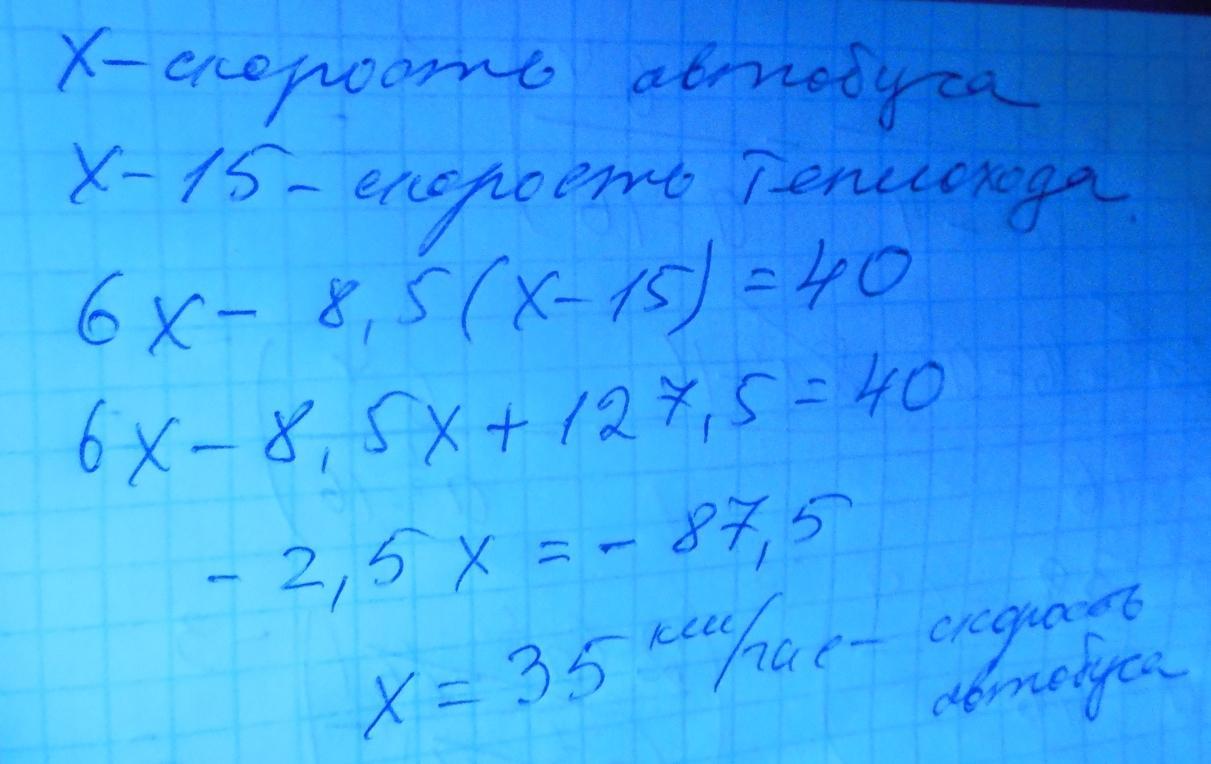 x - скорость автобуса
x - 15 - скорость теплохода
6x - 8,5(x - 15) = 40
6x - 8,5x + 127,5 = 40
- 2,5x = - 87,5
x = 35 км/час - скорость
автобуса